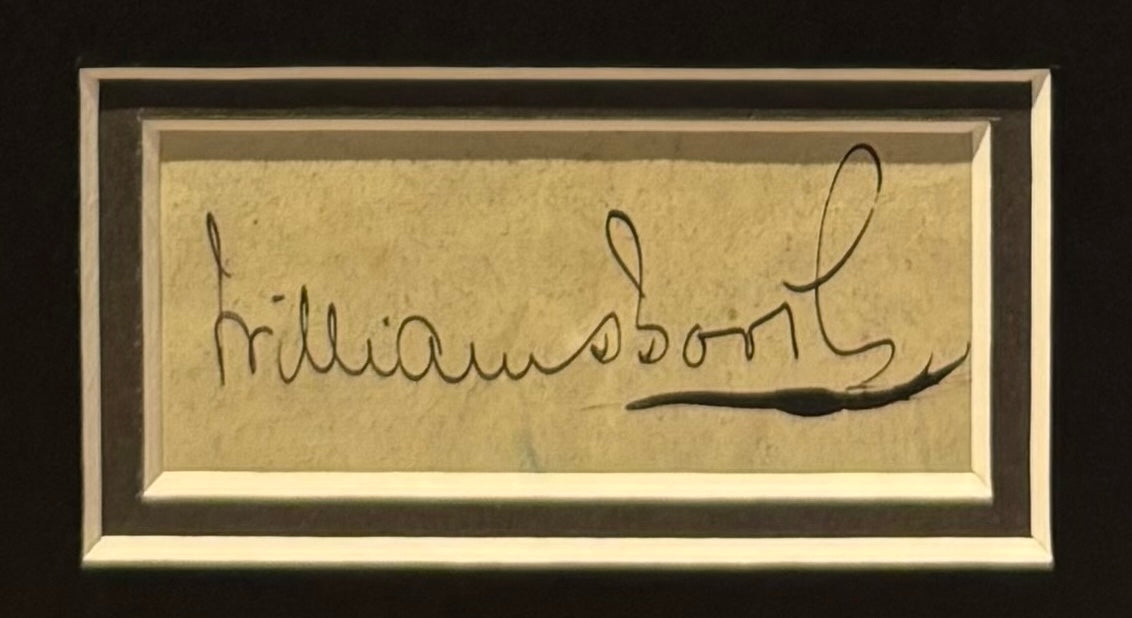 William Booth